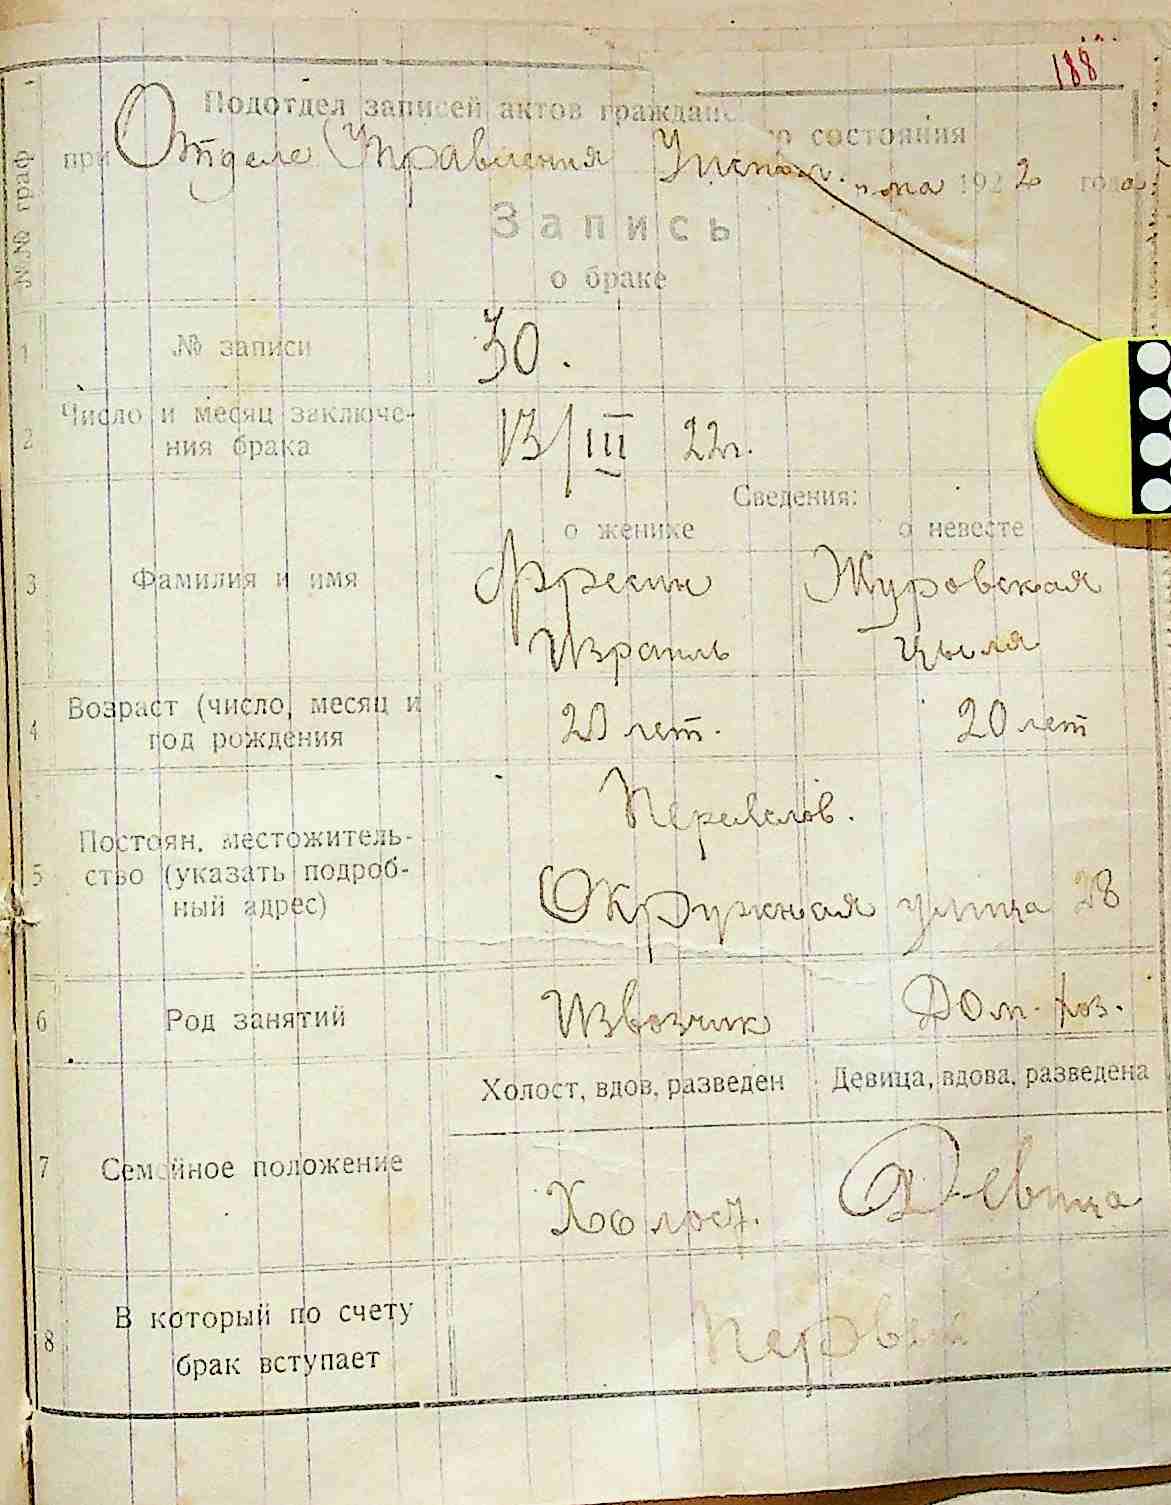 188
Подотдел записей актов гражданс
го состояния
при Отделе Управления 1922 года
№№ граф
Запись
о браке
1 № записи 30.
2 Число и месяц заключе-
ния брака 13/III 22г.
Сведения:
о женихе о невесте
3 Фамилия и имя Журовская
Израиль Цыля
4 Возраст (число, месяц и
год рождения 20 лет. 20 лет
5 Постоян. местожитель-
ство (указать подроб-
ный адрес) Окружная улица 28
6 Род занятий Извозчик Дом. хоз.
Холост, вдов, разведен Девица, вдова, разведена
7 Семейное положение Холост. Девица
8 В который по счету
брак вступает Первый